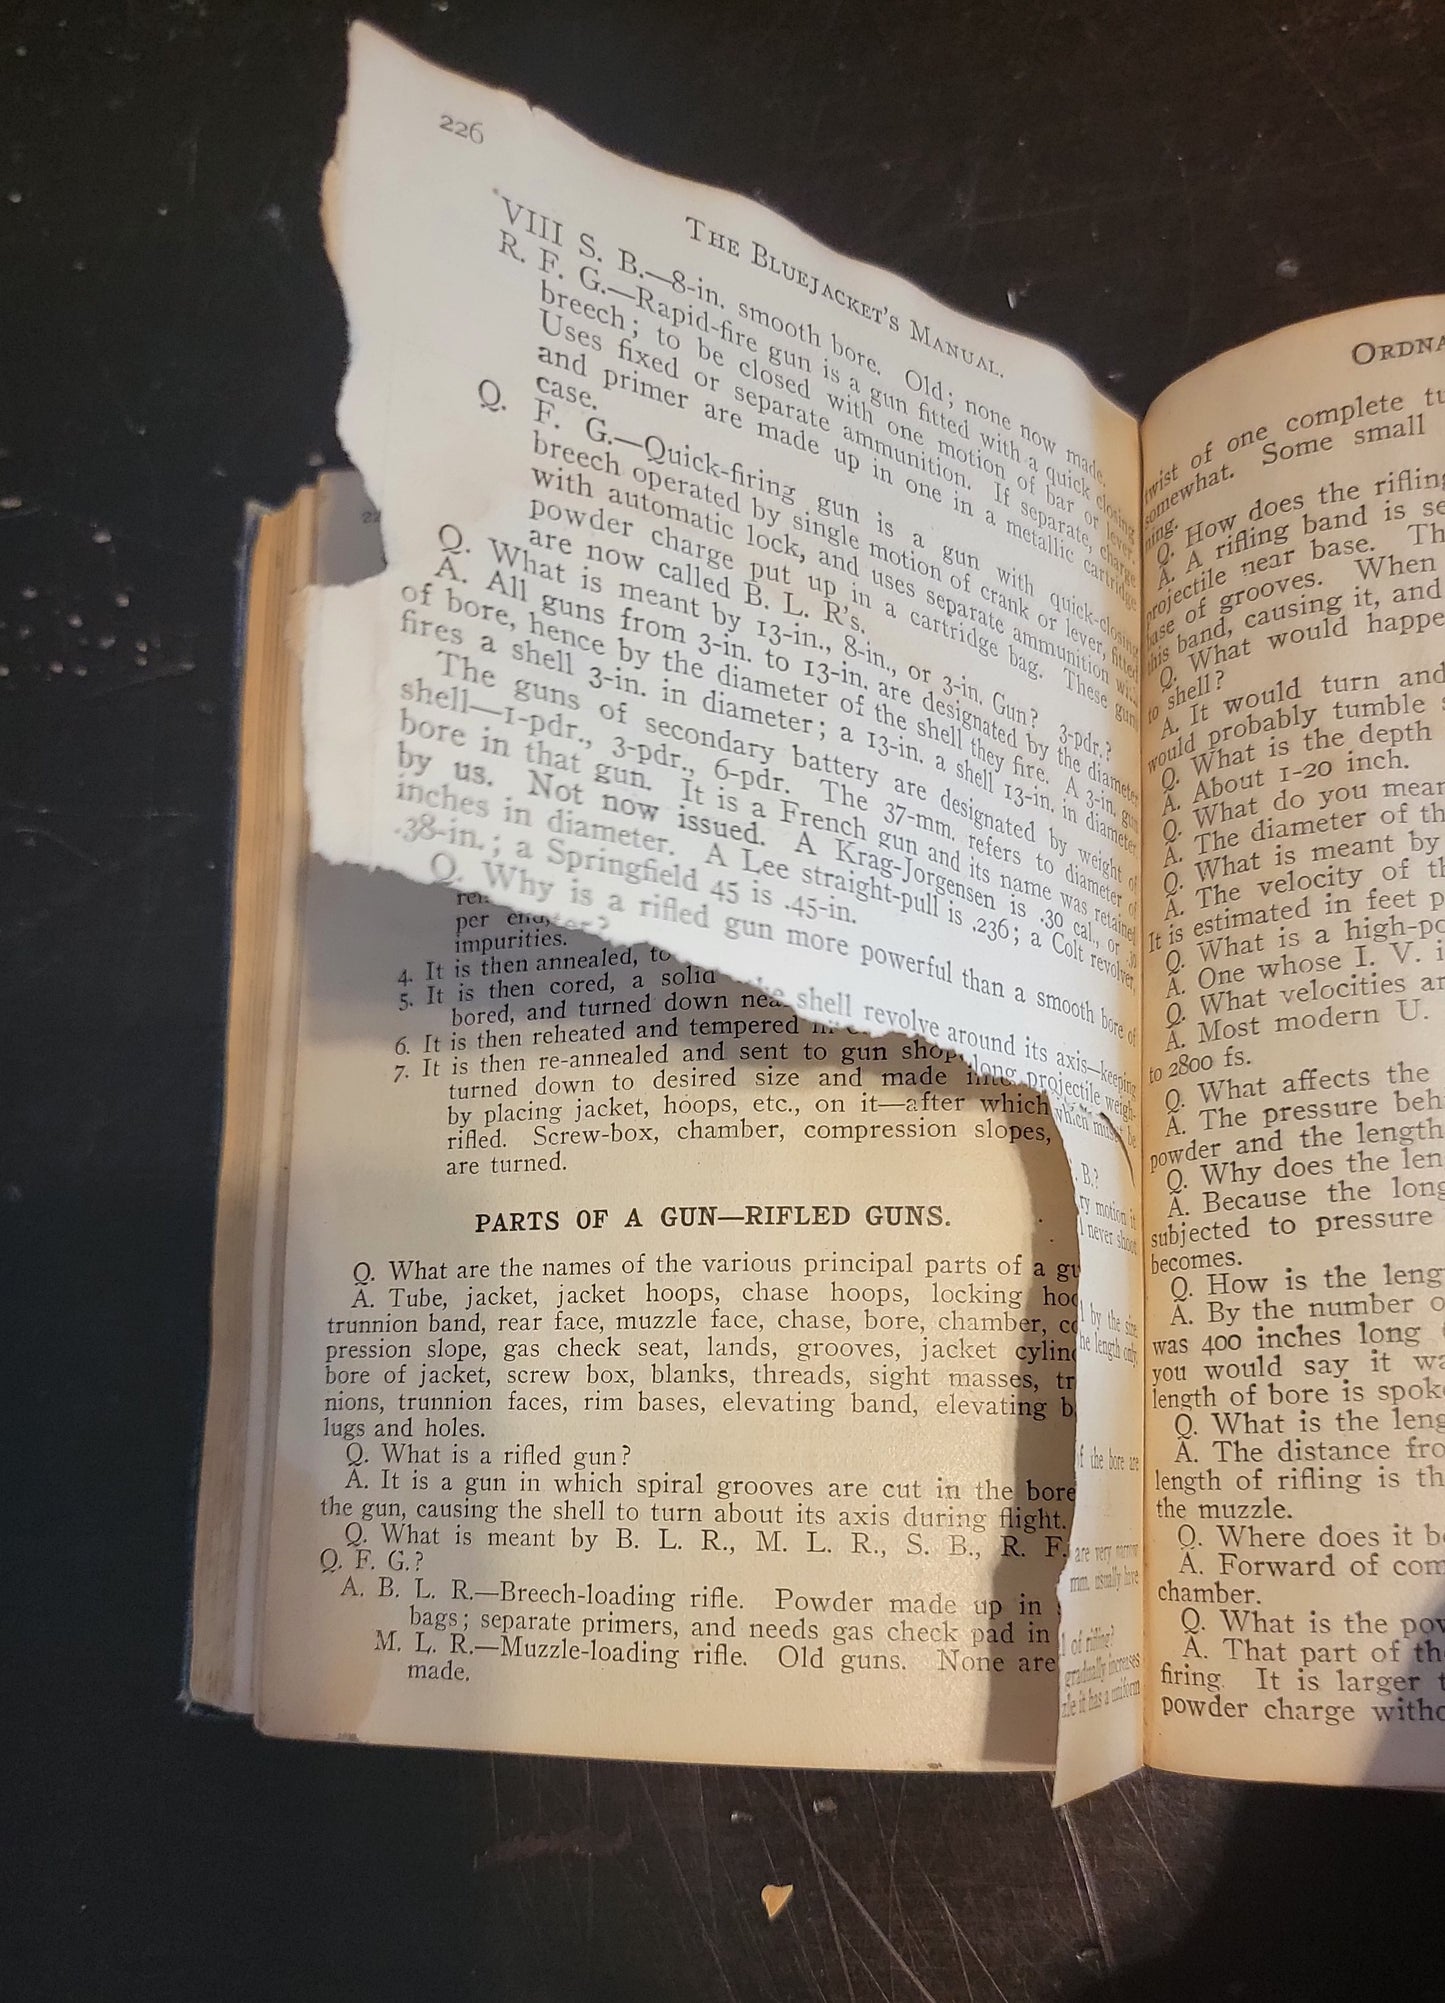 226
THE BLUEJACKET'S MANUAL.
VIII S. B.—8-in. smooth bore. Old; none now made.
R. F. G.—Rapid-fire gun is a gun fitted with a quick closing
breech; to be closed with one motion of bar or lever
Uses fixed or separate ammunition. If separate, charge
and primer are made up in one in a metallic cartridge
case.
Q. F. G.—Quick-firing gun is a gun with quick-closing
breech operated by single motion of crank or lever, fitted
with automatic lock, and uses separate ammunition with
powder charge put up in a cartridge bag. These guns
are now called B. L. R's.
Q. What is meant by 13-in., 8-in., or 3-in. Gun? 3-pdr.?
A. All guns from 3-in. to 13-in. are designated by the diameter
of bore, hence by the diameter of the shell they fire. A 3-in. gun
fires a shell 3-in. in diameter; a 13-in. a shell 13-in. in diameter.
The guns of secondary battery are designated by weight of
shell—1-pdr., 3-pdr., 6-pdr. The 37-mm. refers to diameter of
bore in that gun. It is a French gun and its name was retained
by us. Not now issued. A Krag-Jorgensen is .30 cal., or .30
inches in diameter. A Lee straight-pull is .236; a Colt revolver,
.38-in.; a Springfield 45 is .45-in.
Q. Why is a rifled gun more powerful than a smooth bore of
shell revolve around its axis—keeping
long projectile weigh-
which must be
. B.?
ry motion it
never shoot
by the size
he length only
f the bore are
are very narrow
mm. usually have
of rifling?
gradually increases
it has a uniform
22
per end,
impurities.
4. It is then annealed, to
5. It is then cored, a solid
bored, and turned down nea
6. It is then reheated and tempered in
7. It is then re-annealed and sent to gun shop,
turned down to desired size and made into
by placing jacket, hoops, etc., on it—after which
rifled. Screw-box, chamber, compression slopes,
are turned.
PARTS OF A GUN—RIFLED GUNS.
Q. What are the names of the various principal parts of a gu
A. Tube, jacket, jacket hoops, chase hoops, locking hoo
trunnion band, rear face, muzzle face, chase, bore, chamber, co
pression slope, gas check seat, lands, grooves, jacket cylin
bore of jacket, screw box, blanks, threads, sight masses, tr
nions, trunnion faces, rim bases, elevating band, elevating b
lugs and holes.
Q. What is a rifled gun?
A. It is a gun in which spiral grooves are cut in the bore
the gun, causing the shell to turn about its axis during flight.
Q. What is meant by B. L. R., M. L. R., S. B., R. F.
Q. F. G.?
A. B. L. R.—Breech-loading rifle. Powder made up in
bags; separate primers, and needs gas check pad in
M. L. R.—Muzzle-loading rifle. Old guns. None are
made.
ORDNA
twist of one complete tu
somewhat. Some small
ning.
Q. How does the rifling
A. A rifling band is se
projectile near base. Th
base of grooves. When
this band, causing it, and
Q. What would happe
to shell?
A. It would turn and
would probably tumble
Q. What is the depth
A. About 1-20 inch.
Q. What do you mean
A. The diameter of th
Q. What is meant by
A. The velocity of th
It is estimated in feet p
Q. What is a high-po
A. One whose I. V. i
Q. What velocities ar
A. Most modern U.
to 2800 fs.
Q. What affects the
A. The pressure beh
powder and the length
Q. Why does the len
A. Because the long
subjected to pressure
becomes.
Q. How is the leng
A. By the number o
was 400 inches long
you would say it wa
length of bore is spoke
Q. What is the leng
A. The distance fro
length of rifling is th
the muzzle.
Q. Where does it be
A. Forward of com
chamber.
Q. What is the pow
A. That part of th
firing. It is larger t
powder charge witho